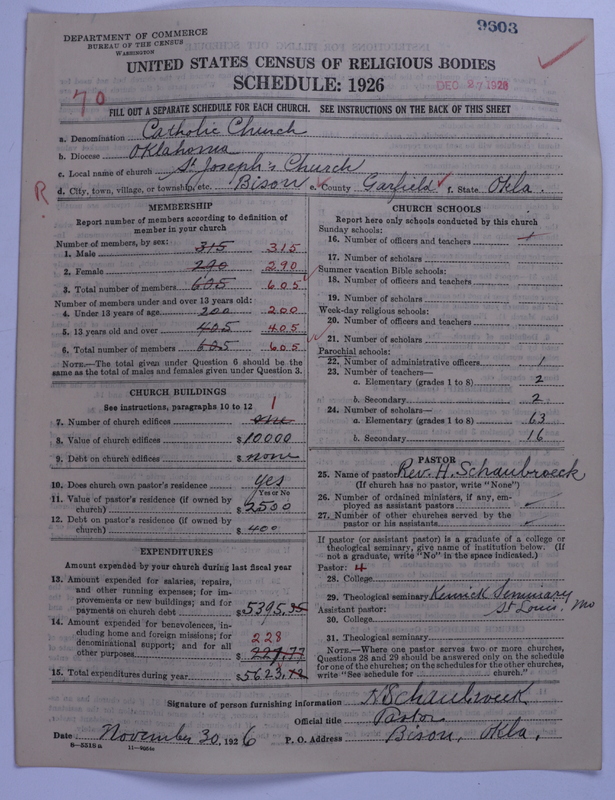 9603
DEPARTMENT OF COMMERCE
BUREAU OF THE CENSUS
WASHINGTON
UNITED STATES CENSUS OF RELIGIOUS BODIES
SCHEDULE: 1926
DEC 27 1926
70
FILL OUT A SEPARATE SCHEDULE FOR EACH CHURCH. SEE INSTRUCTIONS ON THE BACK OF THIS SHEET
a. Denomination Catholic Church
b. Diocese Oklahoma
c. Local name of church St Joseph's Church
d. City, town, village, or township, etc. Bison e. County Garfield f. State Okla.
R
MEMBERSHIP
Report number of members according to definition of
member in your church
Number of members, by sex:
1. Male 315 315
2. Female 290 290
3. Total number of members 605 605
Number of members under and over 13 years old:
4. Under 13 years of age 200 200
5. 13 years old and over 405 405
6. Total number of members 605 605
NOTE.—The total given under Question 6 should be the
same as the total of males and females given under Question 3.
CHURCH BUILDINGS
See instructions, paragraphs 10 to 12
7. Number of church edifices one 1
8. Value of church edifices $10000
9. Debt on church edifices $none
10. Does church own pastor's residence yes
Yes or No
11. Value of pastor's residence (if owned by
church) $2500
12. Debt on pastor's residence (if owned by
church) $400
EXPENDITURES
Amount expended by your church during last fiscal year
13. Amount expended for salaries, repairs,
and other running expenses; for im-
provements or new buildings; and for
payments on church debt $5395.35
14. Amount expended for benevolences, in-
cluding home and foreign missions; for
denominational support; and for all
other purposes $227.77 228
15. Total expenditures during year $5623.12
CHURCH SCHOOLS
Report here only schools conducted by this church
Sunday schools:
16. Number of officers and teachers
17. Number of scholars
Summer vacation Bible schools:
18. Number of officers and teachers
19. Number of scholars
Week-day religious schools:
20. Number of officers and teachers
21. Number of scholars
Parochial schools:
22. Number of administrative officers 1
23. Number of teachers—
a. Elementary (grades 1 to 8) 2
b. Secondary 2
24. Number of scholars—
a. Elementary (grades 1 to 8) 63
b. Secondary 16
PASTOR
25. Name of pastor Rev. H. Schaubroeck
(If church has no pastor, write "None")
26. Number of ordained ministers, if any, em-
ployed as assistant pastors
27. Number of other churches served by the
pastor or his assistants
If pastor (or assistant pastor) is a graduate of a college or
theological seminary, give name of institution below. (If
not a graduate, write "No" in the space indicated.)
Pastor: 4
28. College
29. Theological seminary Kenrick Seminary
Assistant pastor: St Louis, Mo
30. College
31. Theological seminary
NOTE.—Where one pastor serves two or more churches,
Questions 28 and 29 should be answered only on the schedule
for one of the churches; on the schedules for the other churches,
write "See schedule for church."
Signature of person furnishing information H Schaubroeck
Official title Pastor
Date November 30, 1926 P. O. Address Bison, Okla.
8—5518a 11—9664